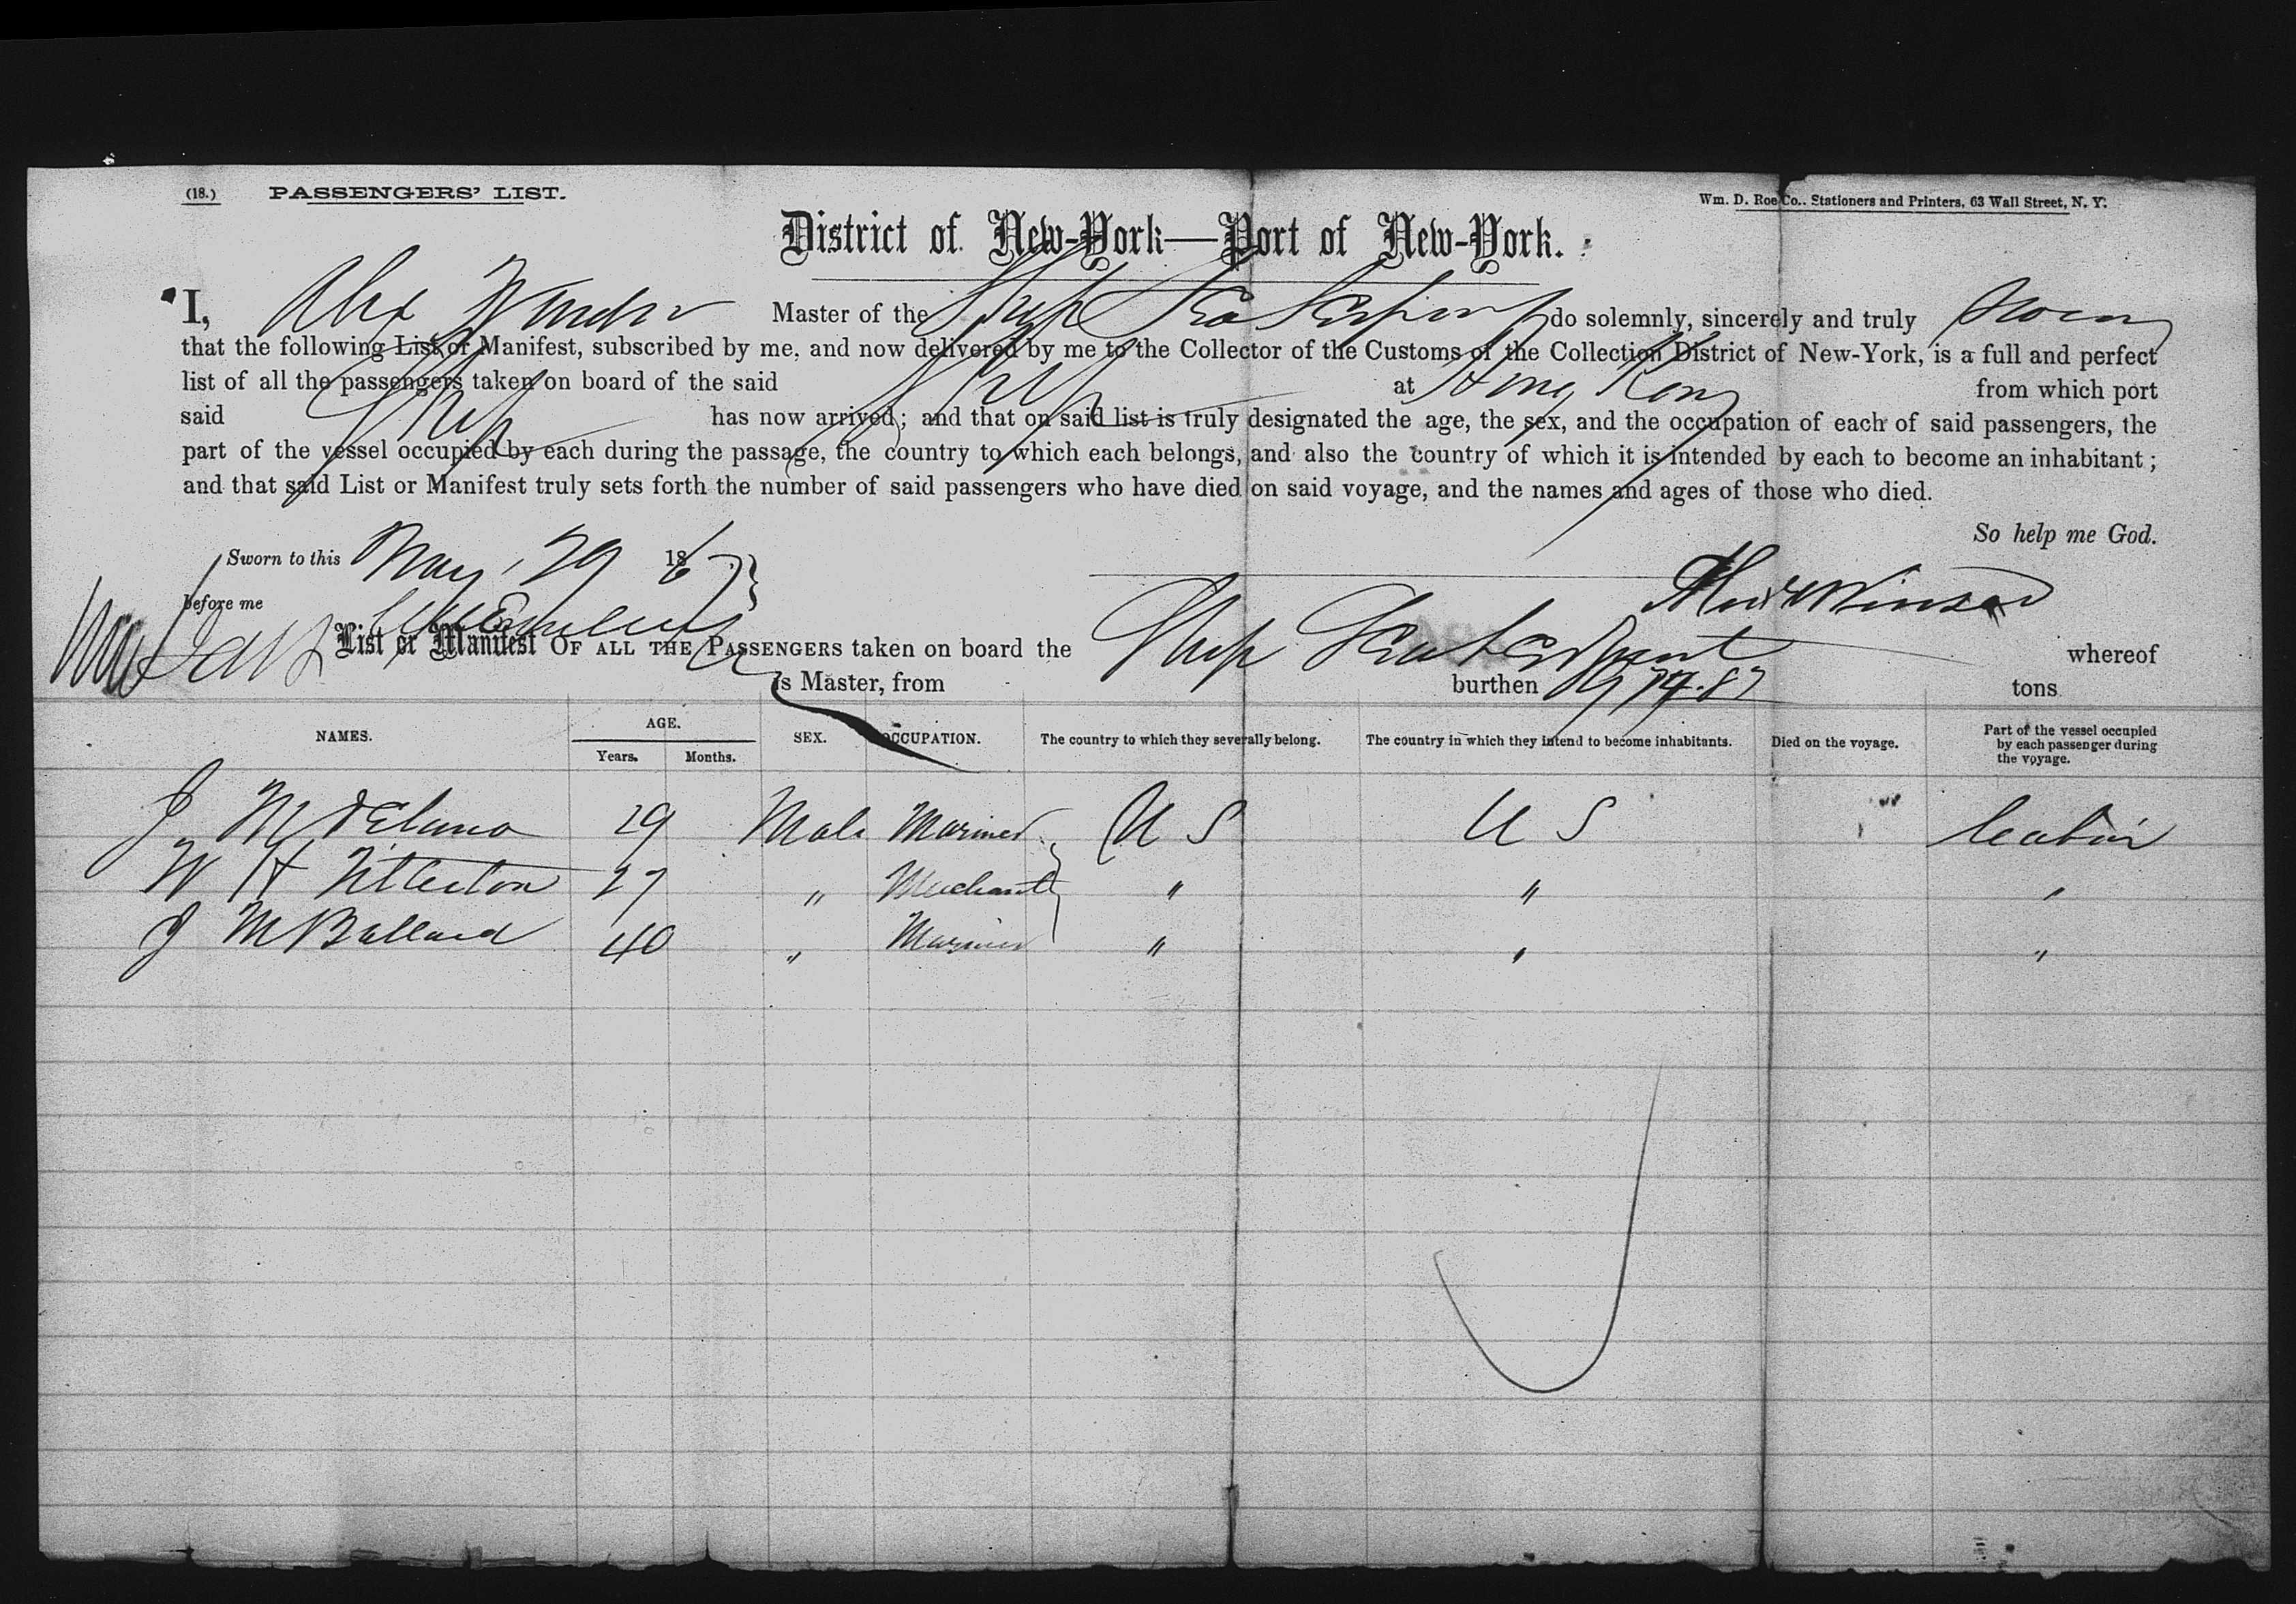 (18.) PASSENGERS' LIST.
Wm. D. Roe Co., Stationers and Printers, 63 Wall Street, N. Y.
District of New-York—Port of New-York.
I, Alex Winsor Master of the Ship Sea Serpent do solemnly, sincerely and truly swear
that the following List or Manifest, subscribed by me, and now delivered by me to the Collector of the Customs of the Collection District of New-York, is a full and perfect
list of all the passengers taken on board of the said Ship at Hong Kong from which port
said Ship has now arrived; and that on said list is truly designated the age, the sex, and the occupation of each of said passengers, the
part of the vessel occupied by each during the passage, the country to which each belongs, and also the country of which it is intended by each to become an inhabitant;
and that said List or Manifest truly sets forth the number of said passengers who have died on said voyage, and the names and ages of those who died.
So help me God.
Sworn to this May 29 1867
before me
Alex Winsor
List or Manifest OF ALL THE PASSENGERS taken on board the Ship Sea Serpent whereof
is Master, from burthen tons
NAMES. AGE. Years. Months. SEX. OCCUPATION. The country to which they severally belong. The country in which they intend to become inhabitants. Died on the voyage. Part of the vessel occupied by each passenger during the voyage.
J M Delano 29 Male Mariner U S U S Cabin
W H Titterton 27 " Merchant " " "
J M Ballard 40 " Mariner " " "